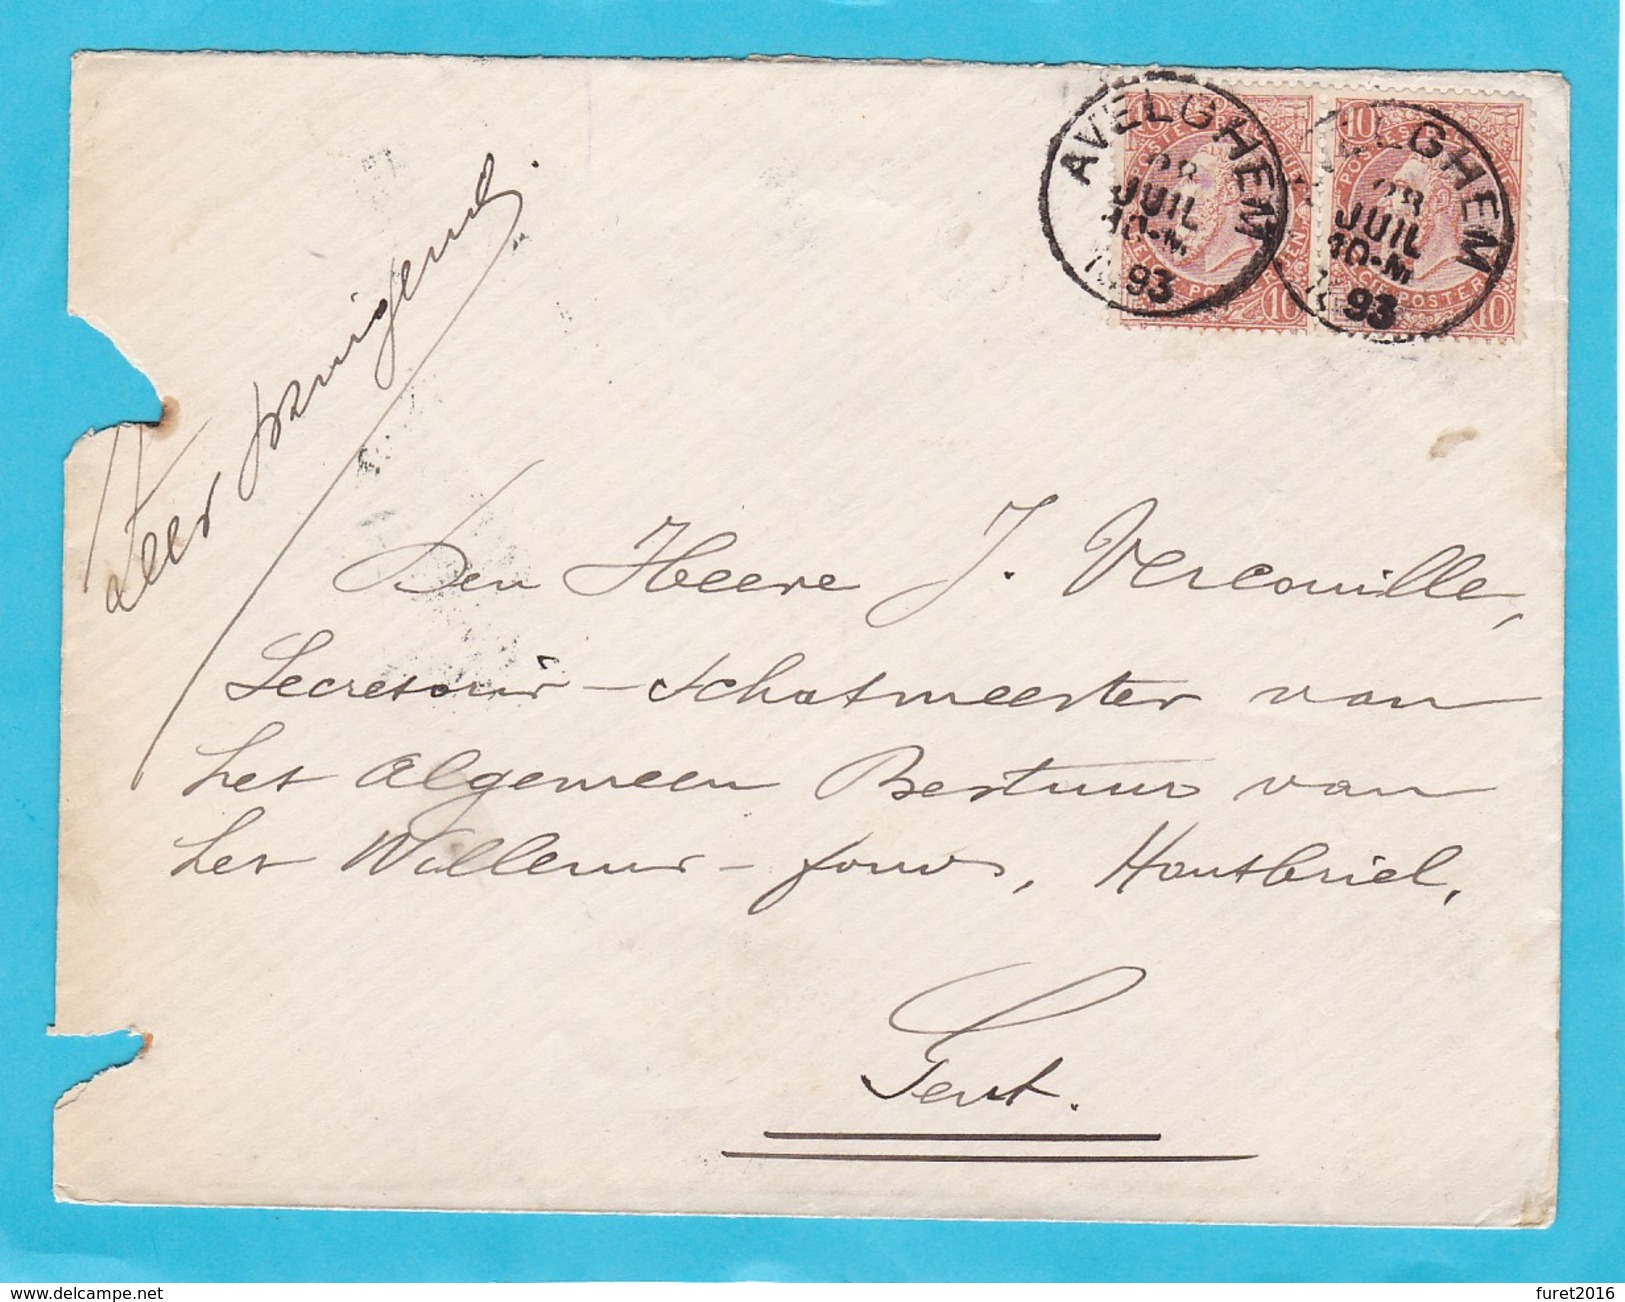 AVELGHEM
28
JUIL
10-M
1893
ELGHEM
28
JUIL
10-M
93
10
10
10
Zeer dringend.
Den Heere J. Vercouillie,
Secretaris-Schatmeester van
het Algemeen Bestuur van
het Willems-fonds, Houtbriel,
Gent.
delcampe.net
furet2016